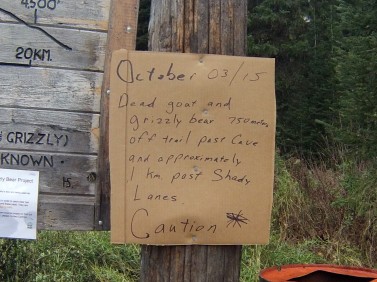 4,500'
20KM.
GRIZZLY)
KNOWN
15.
Bear Project
October 03/15
Dead goat and
grizzly bear 750 metres
off trail past Cave
and approximately
1 km past Shady
Lanes.
Caution